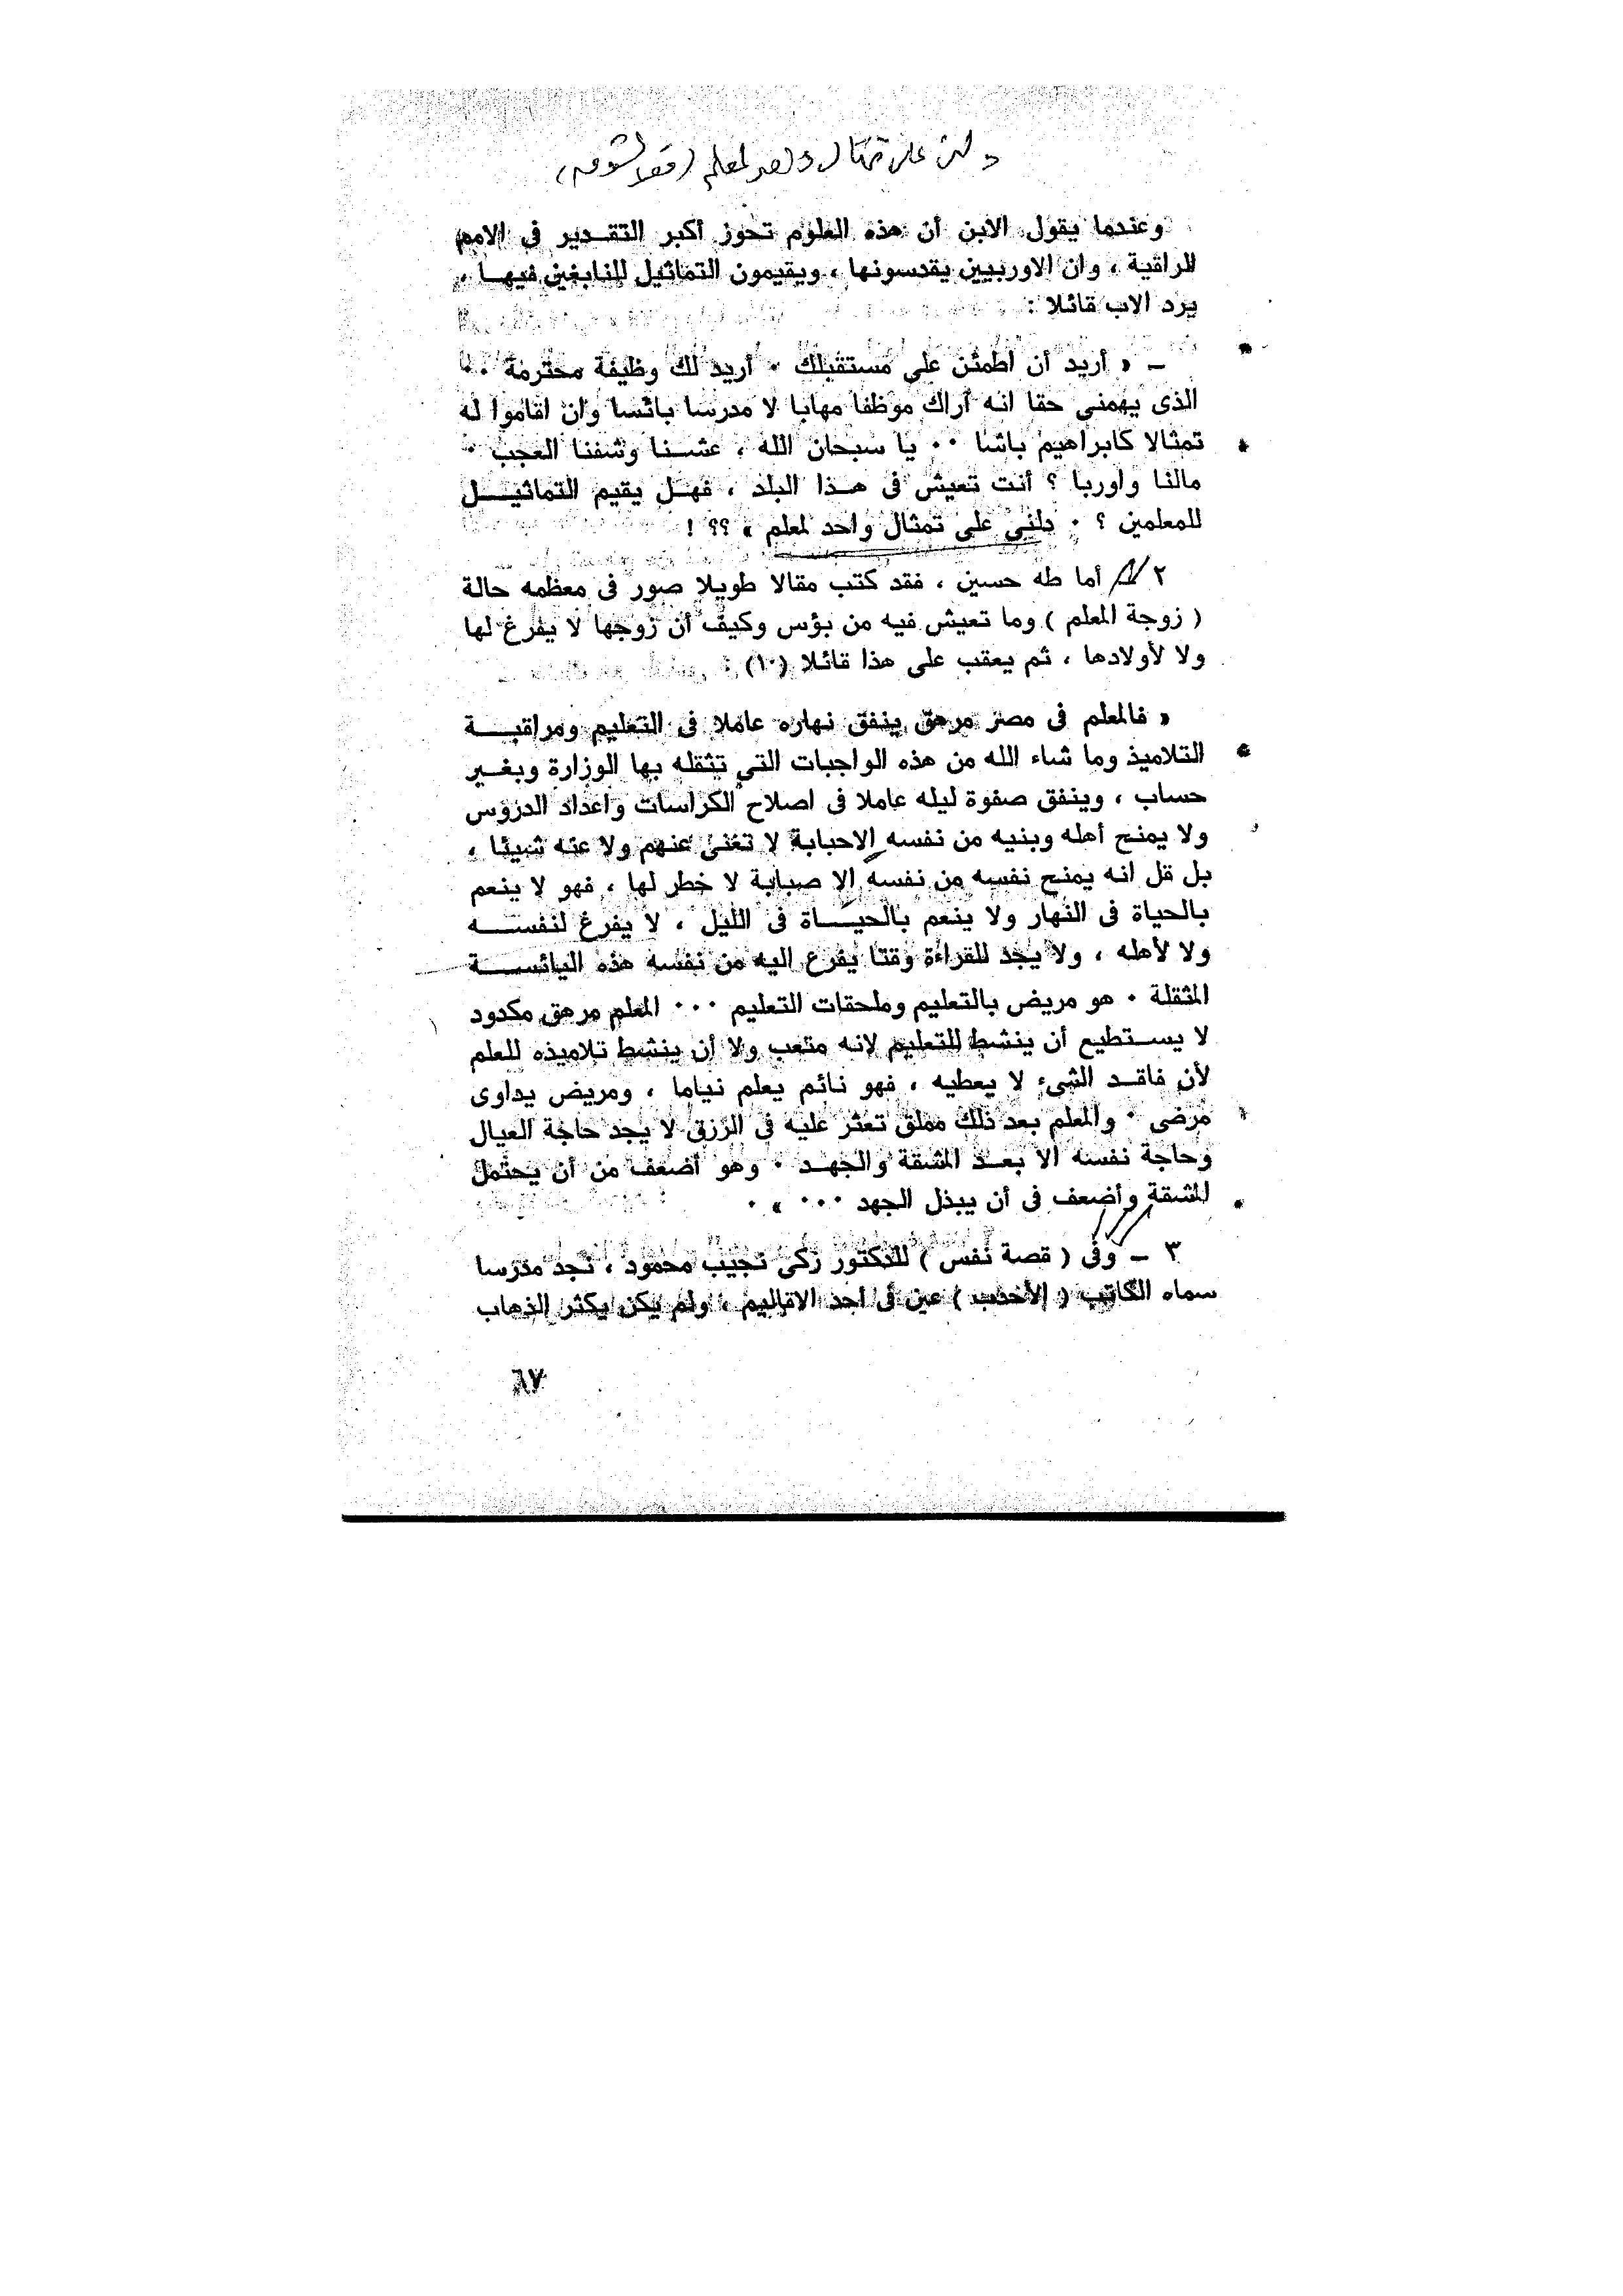 دلنى على تمثال واحد لمعلم
وعندما يقول الابن أن هذه العلوم تحوز أكبر التقـدير فى الامم
الراقية ، وان الاوربيين يقدسونها ، ويقيمون التماثيل للنابغين فيهـا ،
يرد الاب قائلا :
ــ « أريد أن اطمئن على مستقبلك ٠ أريد لك وظيفة محترمة ٠٠
الذى يهمنى حقا انه أراك موظفا مهابا لا مدرسا بائسا وان اقاموا له
تمثالا كابراهيم باشا ٠٠ يا سبحان الله ، عشـنا وشفنا العجب ٠
مالنا واوربا ؟ أنت تعيش فى هـذا البلد ، فهـل يقيم التماثيـل
للمعلمين ؟ ٠ دلنى على تمثال واحد لمعلم » ؟؟ !
٢ ــ أما طه حسين ، فقد كتب مقالا طويلا صور فى معظمه حالة
( زوجة المعلم ) وما تعيش فيه من بؤس وكيف أن زوجها لا يفرغ لها
ولا لأولادها ، ثم يعقب على هذا قائلا (١٠) :
« فالمعلم فى مصر مرهق ينفق نهاره عاملا فى التعليم ومراقبـة
التلاميذ وما شاء الله من هذه الواجبات التى تثقله بها الوزارة وبغـير
حساب ، وينفق صفوة ليله عاملا فى اصلاح الكراسات واعداد الدروس
ولا يمنح أهله وبنيه من نفسه الاحبابة لا تغنى عنهم ولا عنه شيئا ،
بل قل انه يمنح نفسه من نفسه الا صبابة لا خطر لها ، فهو لا ينعم
بالحياة فى النهار ولا ينعم بالحيـاة فى الليل ، لا يفرغ لنفسـه
ولا لأهله ، ولا يجد للقراءة وقتا يفرغ اليه من نفسه هذه اليائسـة
المثقلة ٠ هو مريض بالتعليم وملحقات التعليم ٠٠٠ المعلم مرهق مكدود
لا يسـتطيع أن ينشط للتعليم لانه متعب ولا أن ينشط تلاميذه للعلم
لأن فاقـد الشىء لا يعطيه ، فهو نائم يعلم نياما ، ومريض يداوى
مرضى ٠ والمعلم بعد ذلك مملق تعثر عليه فى الرزق لا يجد حاجة العيال
وحاجة نفسه الا بعـد المشقة والجهـد ٠ وهو أضعف من أن يحتمل
المشقة وأضعف فى أن يبذل الجهد ٠٠٠ » ٠
٣ ــ وفى ( قصة نفس ) للدكتور زكى نجيب محمود ، نجد مدرسا
سماه الكاتب ( الأحدب ) عين فى احد الاقاليم ، ولم يكن يكثر الذهاب
٦٧